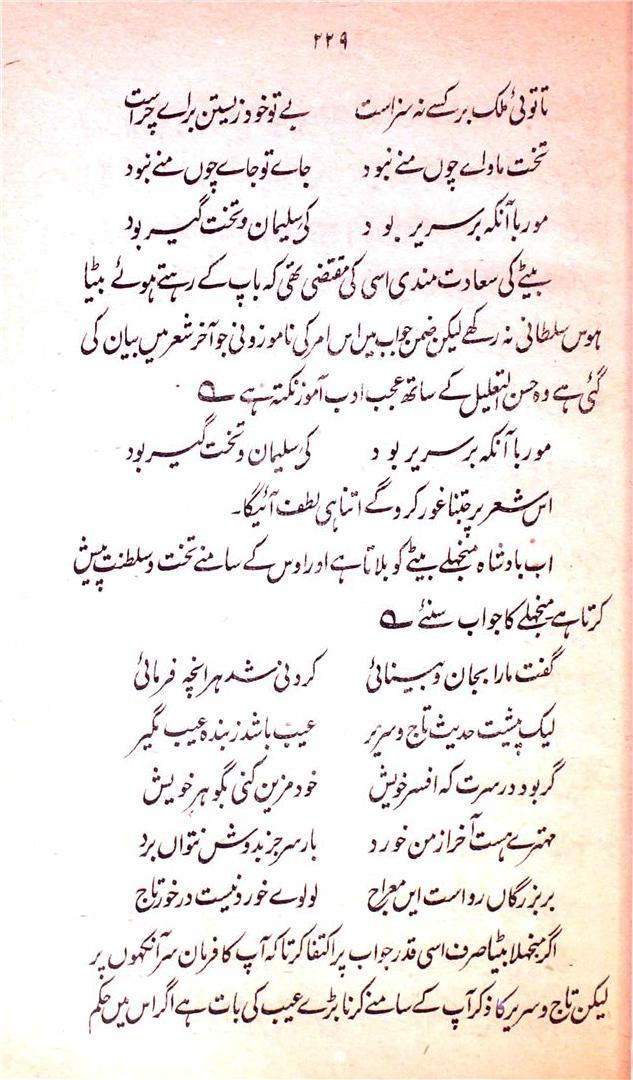 ۲۲۹
تا توئی ملک بر کسے نہ سزاست بے تو خود زیستن براے چراست
تخت ماواے چوں منے نبود جاے تو جاے چوں منے نبود
مور با آنکہ بر سریر بود کی سلیمان و تخت گیر بود
بیٹے کی سعادت مندی اسی کی مقتضی تھی کہ باپ کے رہتے ہوئے بیٹا
ہوس سلطانی نہ رکھے لیکن ضمن جواب میں اس امر کی ناموزونی جو آخر شعر میں بیان کی
گئی ہے وہ حسن التعلیل کے ساتھ عجب ادب آموز نکتہ ہے ؎
مور با آنکہ بر سریر بود کی سلیمان و تخت گیر بود
اس شعر پر جتنا غور کرو گے اتنا ہی لطف آئیگا۔
اب بادشاہ منجھلے بیٹے کو بلاتا ہے اور اوس کے سامنے تخت و سلطنت پیش
کرتا ہے منجھلے کا جواب سنئے ؎
گفت مارا بجان و بینائی کردنی شد ہرانچہ فرمائی
لیک پیشت حدیث تاج و سریر عیب باشد ز بندہ عیب مگیر
گر بود در سرت کہ افسر خویش خود مزین کنی بگوہر خویش
مہترے ہست آخر از من خورد بار سر جز بدوش نتواں برد
بر بزرگاں رواست ایں معراج لولوے خورد نیست در خور تاج
اگر منجھلا بیٹا صرف اسی قدر جواب پر اکتفا کرتا کہ آپ کا فرمان سر آنکھوں پر
لیکن تاج و سریر کا ذکر آپ کے سامنے کرنا بڑے عیب کی بات ہے اگر اس میں حکم